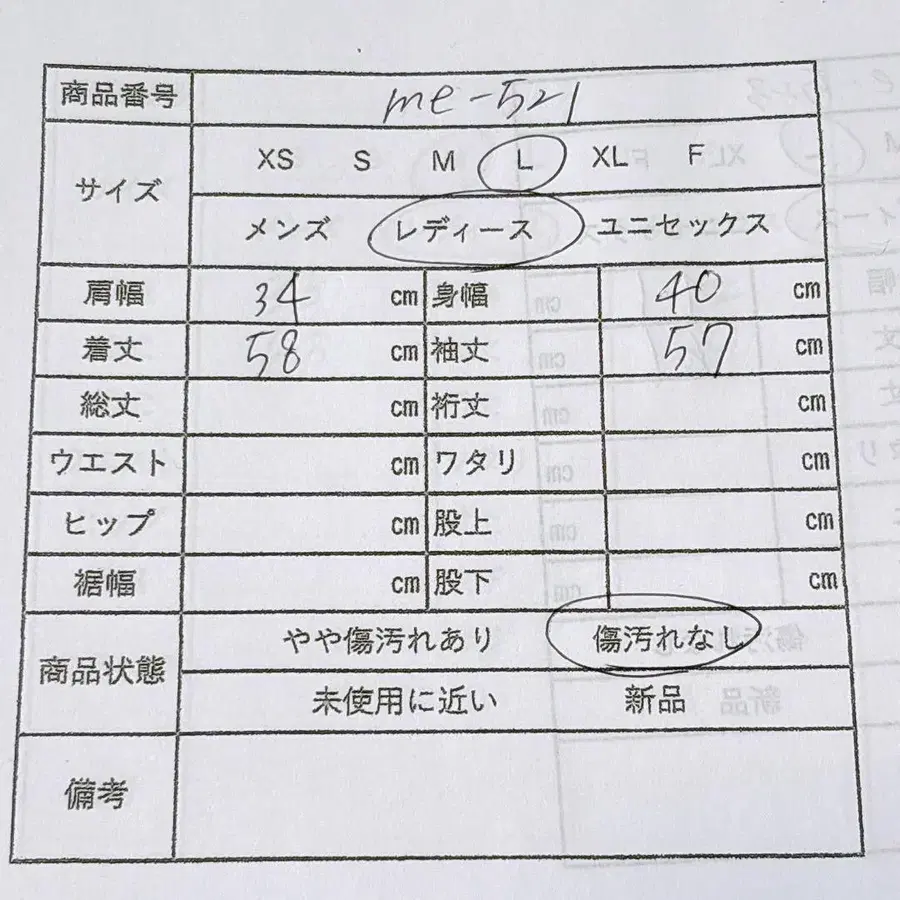 商品番号 me-521
サイズ XS S M L XL F
メンズ レディース ユニセックス
肩幅 34 cm 身幅 40 cm
着丈 58 cm 袖丈 57 cm
総丈 cm 裄丈 cm
ウエスト cm ワタリ cm
ヒップ cm 股上 cm
裾幅 cm 股下 cm
商品状態 やや傷汚れあり 傷汚れなし
未使用に近い 新品
備考